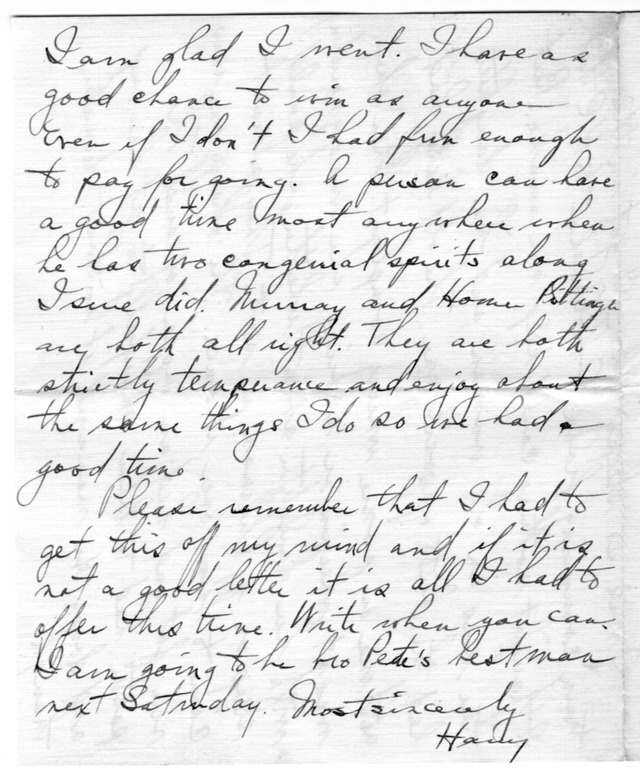 I am glad I went. I have as
good chance to win as anyone
Even if I don't I had fun enough
to pay for going. A person can have
a good time most anywhere when
he has two congenial spirits along
I sure did. Murray and Homer Pittinger
are both all right. They are both
strictly temperance and enjoy about
the same things I do so we had a
good time.
Please remember that I had to
get this off my mind and if it is
not a good letter it is all I had to
offer this time. Write when you can.
I am going to be bro Pete's best man
next Saturday. Most sincerely
Harry